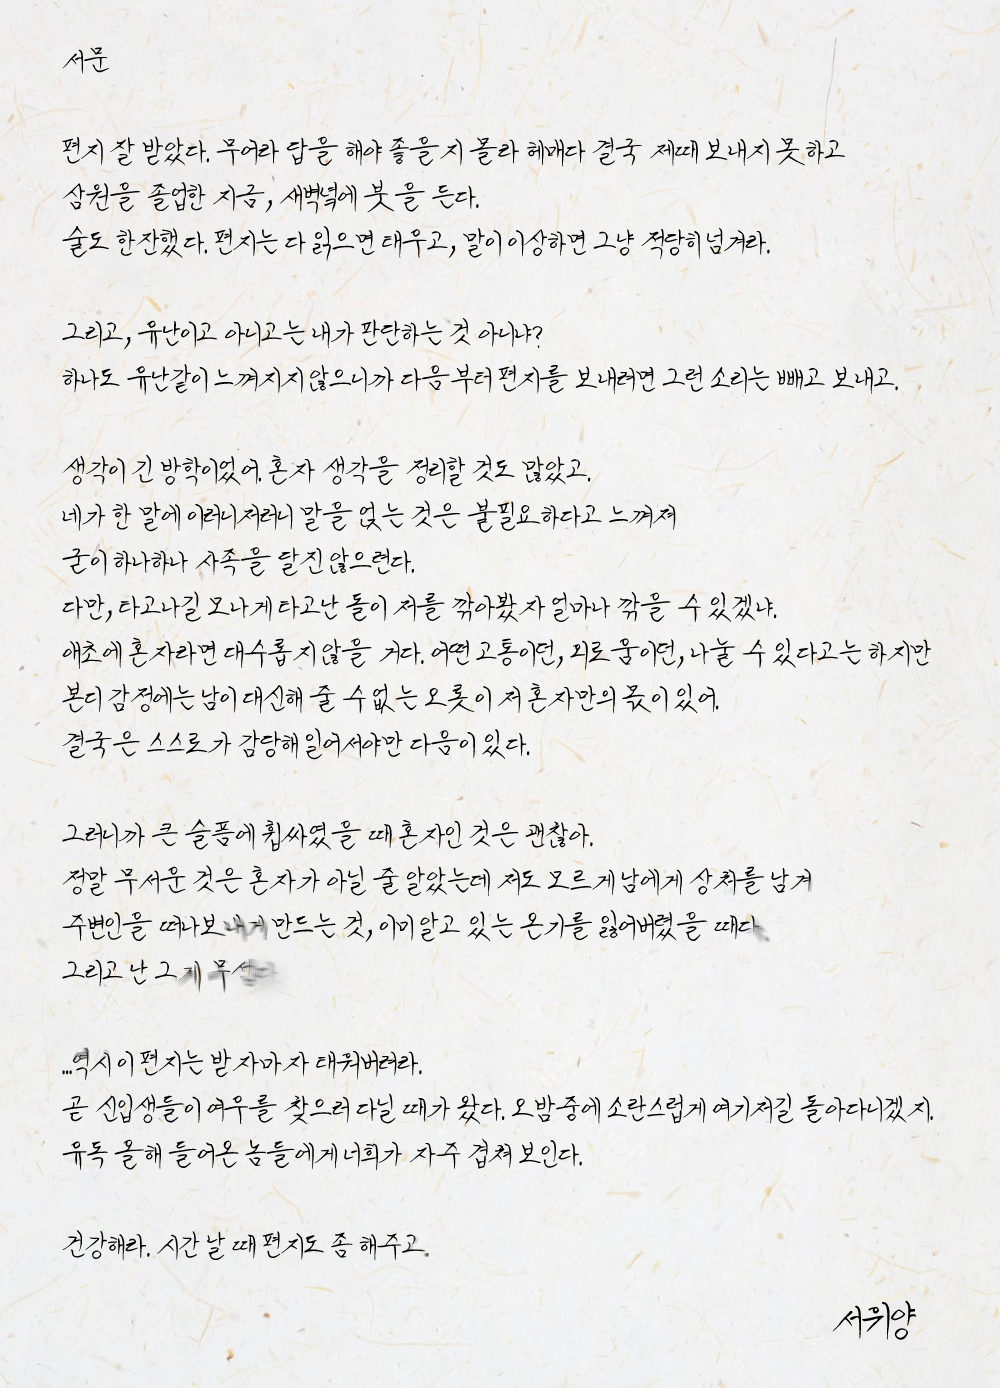 서문
편지 잘 받았다. 무어라 답을 해야 좋을 지 몰라 헤매다 결국 제때 보내지 못하고
삼원을 졸업한 지금, 새벽녘에 붓을 든다.
술도 한잔했다. 편지는 다 읽으면 태우고, 말이 이상하면 그냥 적당히 넘겨라.
그리고, 유난이고 아니고는 내가 판단하는 것 아니냐?
하나도 유난같이 느껴지지 않으니까 다음부터 편지를 보내려면 그런 소리는 빼고 보내고.
생각이 긴 방학이었어. 혼자 생각을 정리할 것도 많았고.
네가 한 말에 이러니저러니 말을 얹는 것은 불필요하다고 느껴져
굳이 하나하나 사족을 달진 않으련다.
다만, 타고나길 모나게 타고난 돌이 저를 깎아봤자 얼마나 깎을 수 있겠냐.
애초에 혼자라면 대수롭지 않을 거다. 어떤 고통이던, 괴로움이던, 나눌 수 있다고는 하지만
본디 감정에는 남이 대신해 줄 수 없는 오롯이 저 혼자만의 몫이 있어.
결국은 스스로가 감당해 일어서야만 다음이 있다.
그러니까 큰 슬픔에 휩싸였을 때 혼자인 것은 괜찮아.
정말 무서운 것은 혼자가 아닐 줄 알았는데 저도 모르게 남에게 상처를 남겨
주변인을 떠나보내게 만드는 것, 이미 알고 있는 온기를 잃어버렸을 때다.
그리고 난 그게 무섭다
...역시 이 편지는 받자마자 태워버려라.
곧 신입생들이 여우를 찾으러 다닐 때가 왔다. 오밤중에 소란스럽게 여기저길 돌아다니겠지.
유독 올해 들어온 놈들에게 너희가 자주 겹쳐 보인다.
건강해라. 시간 날 때 편지도 좀 해주고.
서위양